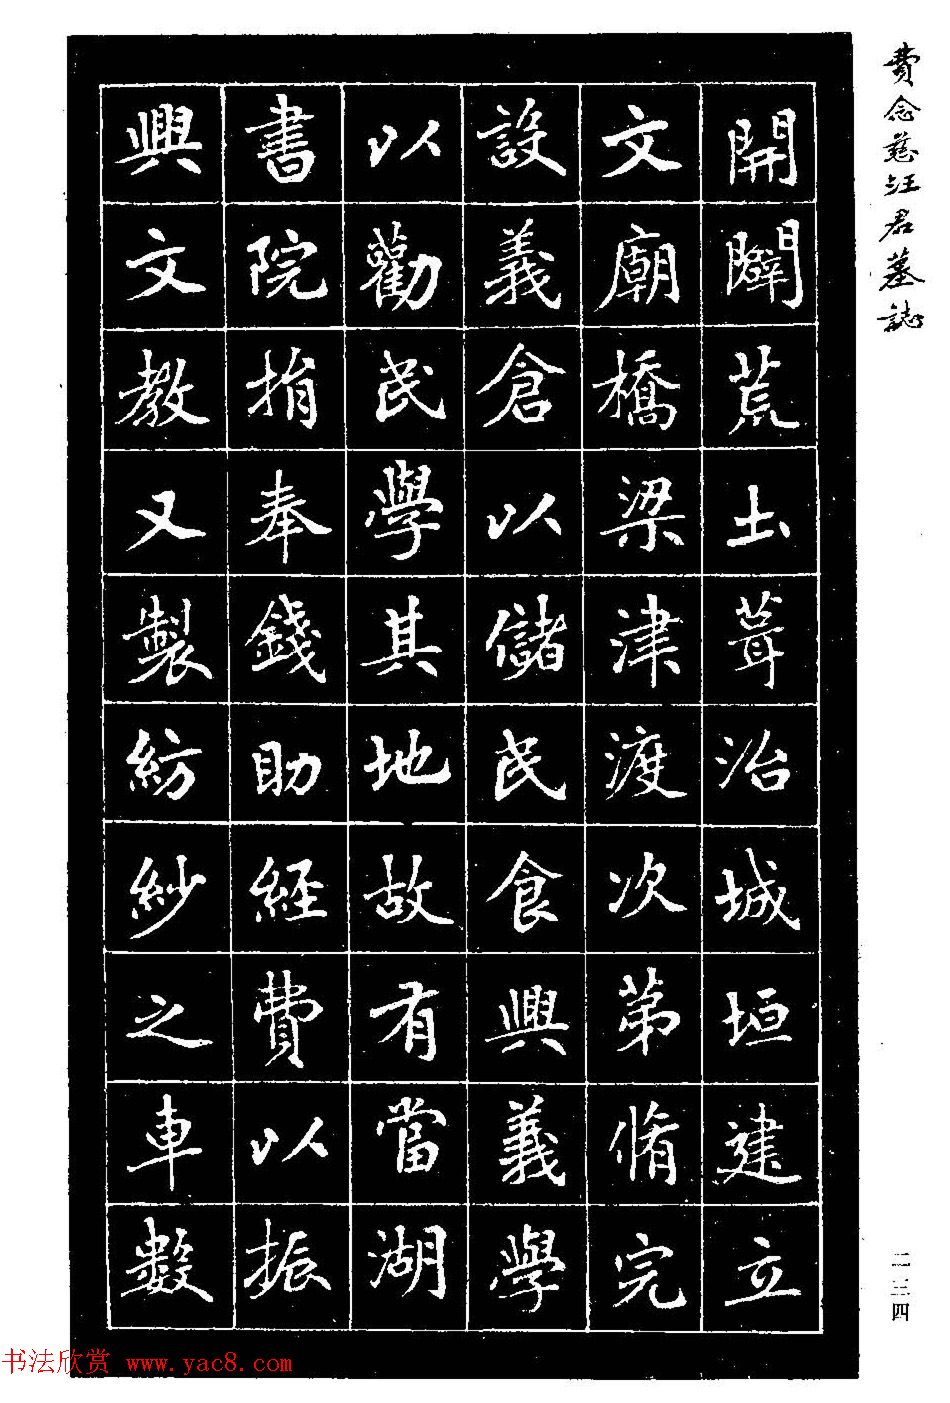 費念慈汪君墓誌
開闢荒土葺治城垣建立
文廟橋梁津渡次第脩完
設義倉以儲民食興義學
以勸民學其地故有當湖
書院捐奉錢助経費以振
興文教又製紡紗之車數
二二四
书法欣赏 www.yac8.com